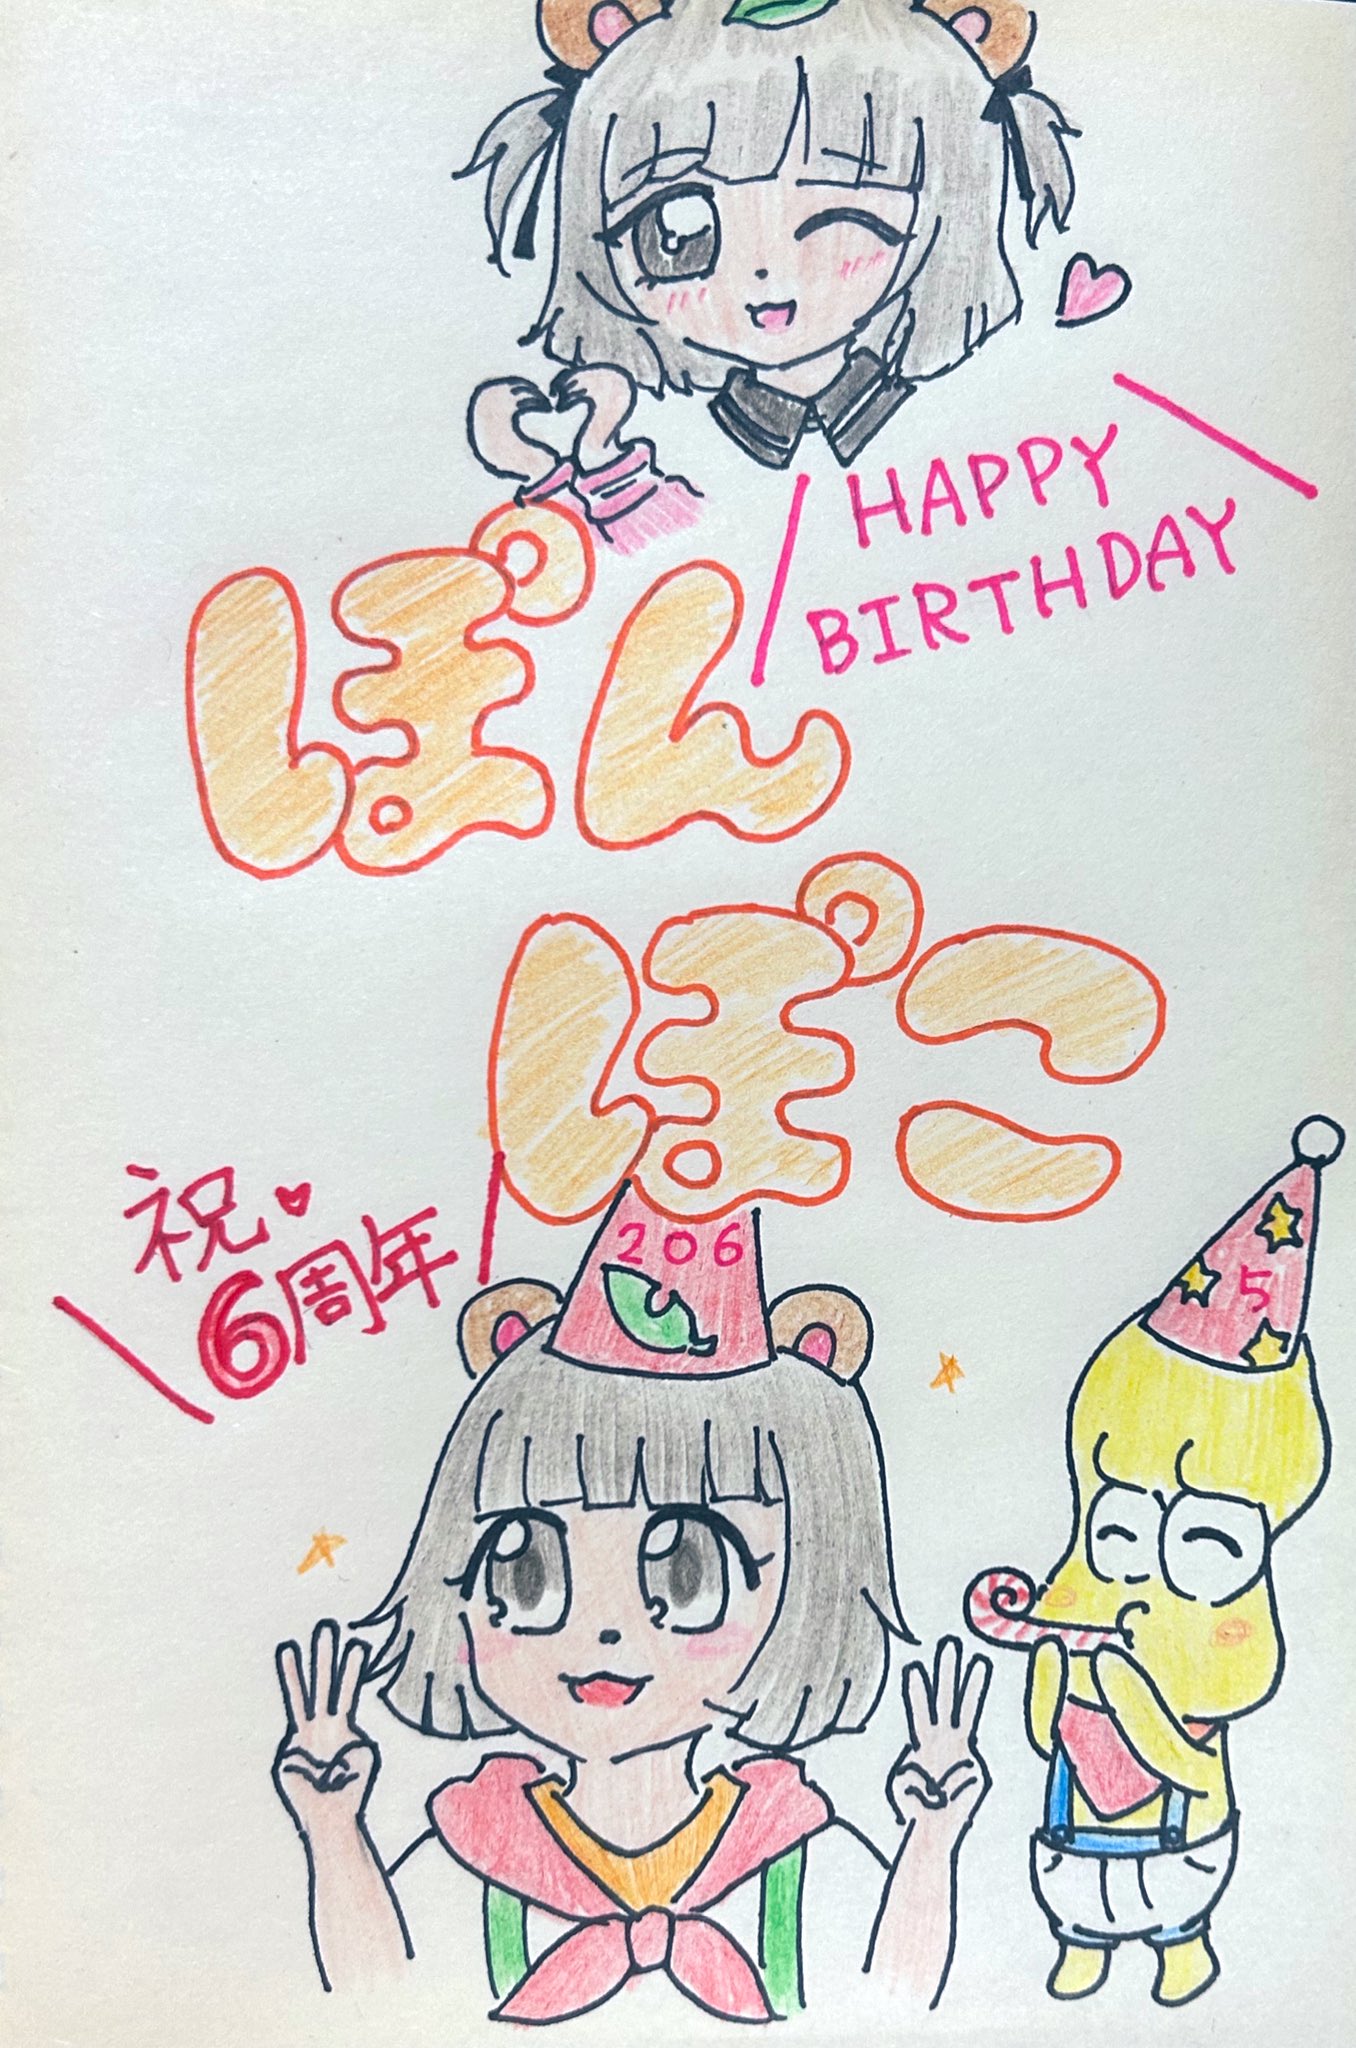 HAPPY
BIRTHDAY
ぽん
ぽこ
祝
6周年
206
5